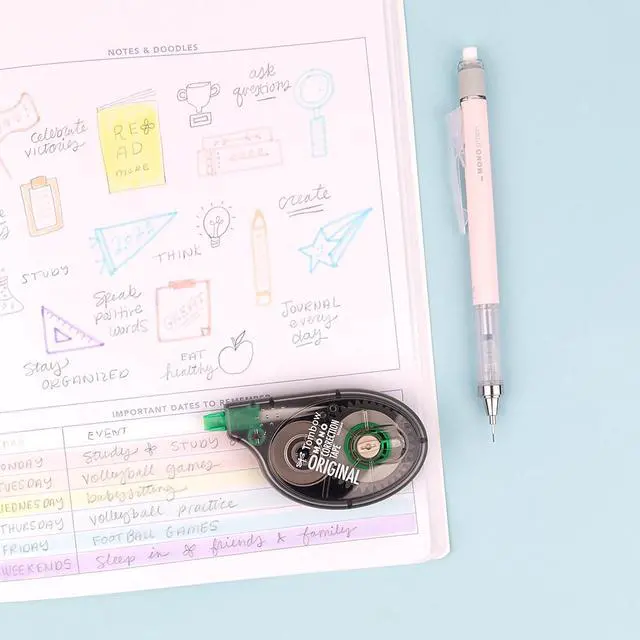 NOTES & DOODLES
ask
questions
celebrate
victories
READ
MORE
create
2022
THINK
STUDY
Speak
positive
words
JOURNAL
every
day
Stay
ORGANIZED
EAT
healthy
IMPORTANT DATES TO REMEMBER
EVENT
MONDAY study & STUDY
TUESDAY volleyball games
WEDNESDAY babysitting
THURSDAY volleyball practice
FRIDAY FOOTBALL GAMES
WEEKENDS sleep in & friends & family
Tombow
MONO
CORRECTION
TAPE
ORIGINAL
MONO